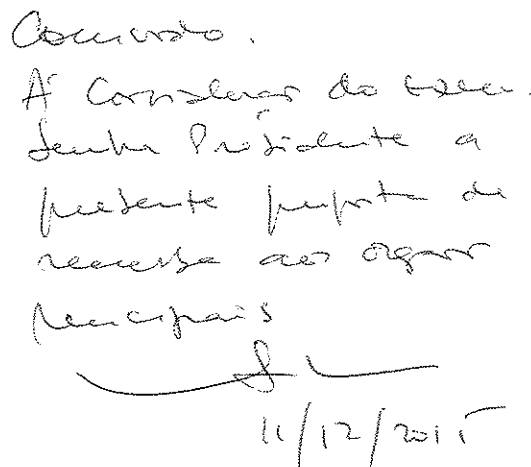 Concordo.
À Consideração da Exma.
Senhora Presidente a
presente proposta de
remessa aos órgãos
municipais
11/12/2015